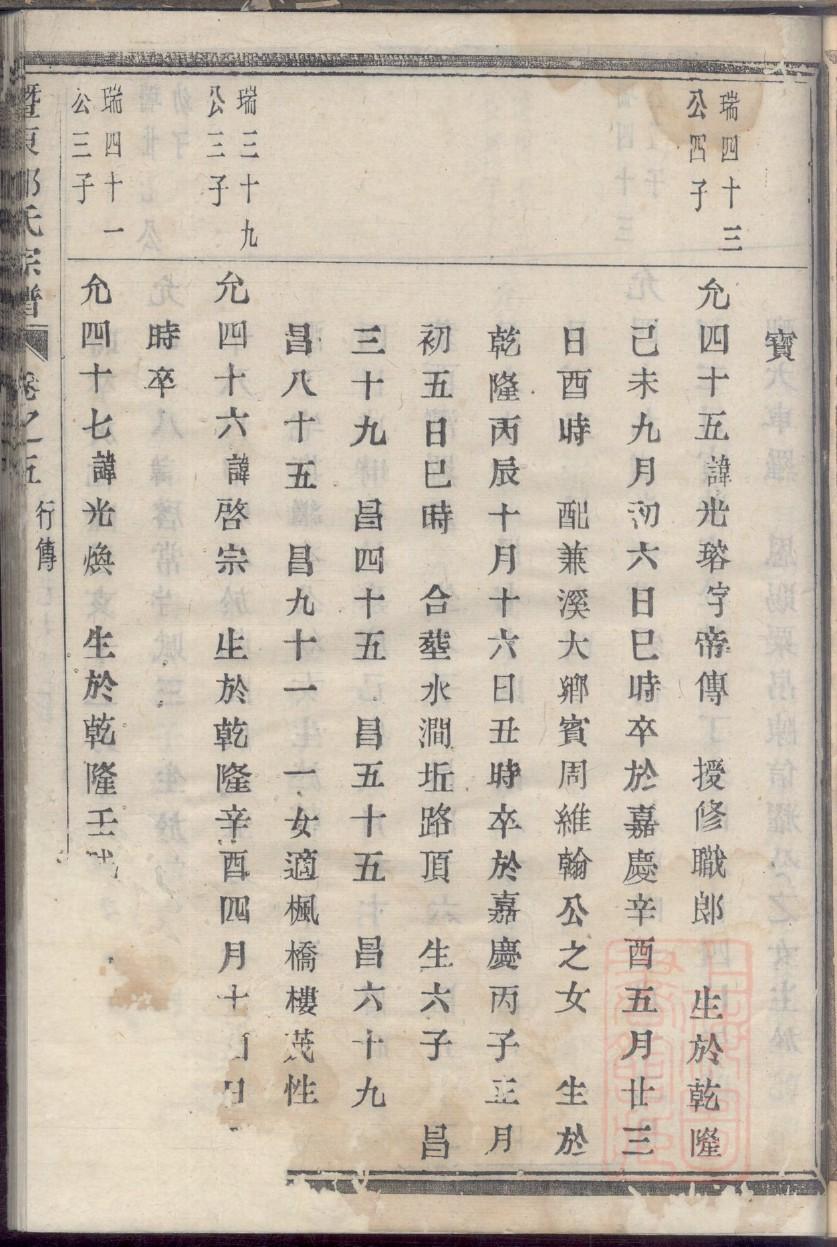 寶
瑞四十三
公四子
允四十五諱光瑢字帝傳　授修職郎　生於乾隆
己未九月初六日巳時卒於嘉慶辛酉五月廿三
日酉時　配兼溪大鄉賓周維翰公之女　生於
乾隆丙辰十月十六日丑時卒於嘉慶丙子正月
初五日巳時　合塟水澗坵路頂　生六子　昌
三十九　昌四十五　昌五十五　昌六十九
昌八十五　昌九十一　一女適楓橋樓茂性
瑞三十九
公三子
允四十六諱啓宗　生於乾隆辛酉四月十日
時卒
瑞四十一
公三子
允四十七諱光煥　生於乾隆壬
東氏宗譜　卷之五　行傳